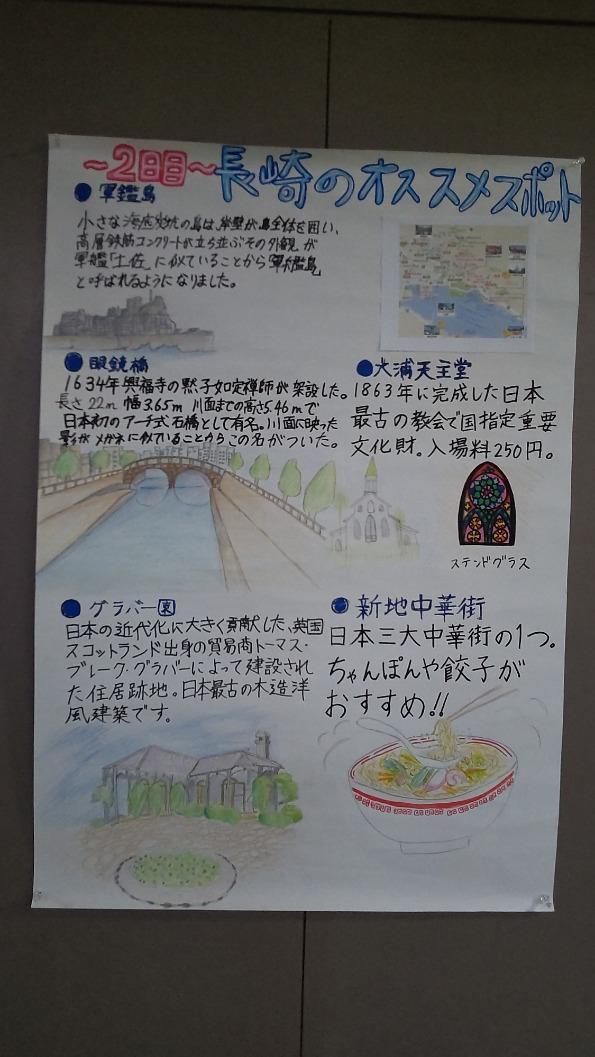 ~2日目~長崎のオススメスポット
●軍鑑島
小さな海底炭坑の島は、岸壁が島全体を囲い、
高層鉄筋コンクリートが立ち並ぶその外観が
軍艦「土佐」に似ていることから「軍艦島」
と呼ばれるようになりました。
●眼鏡橋
1634年興福寺の黙子如定禅師が架設した。
長さ22m 幅3.65m 川面までの高さ5.46mで
日本初のアーチ式石橋として有名。川面に映った
影がメガネに似ていることからこの名がついた。
●大浦天主堂
1863年に完成した日本
最古の教会で国指定重要
文化財。入場料250円。
ステンドグラス
●グラバー園
日本の近代化に大きく貢献した、英国
スコットランド出身の貿易商トーマス・
ブレーク・グラバーによって建設され
た住居跡地。日本最古の木造洋
風建築です。
●新地中華街
日本三大中華街の1つ。
ちゃんぽんや餃子が
おすすめ!!